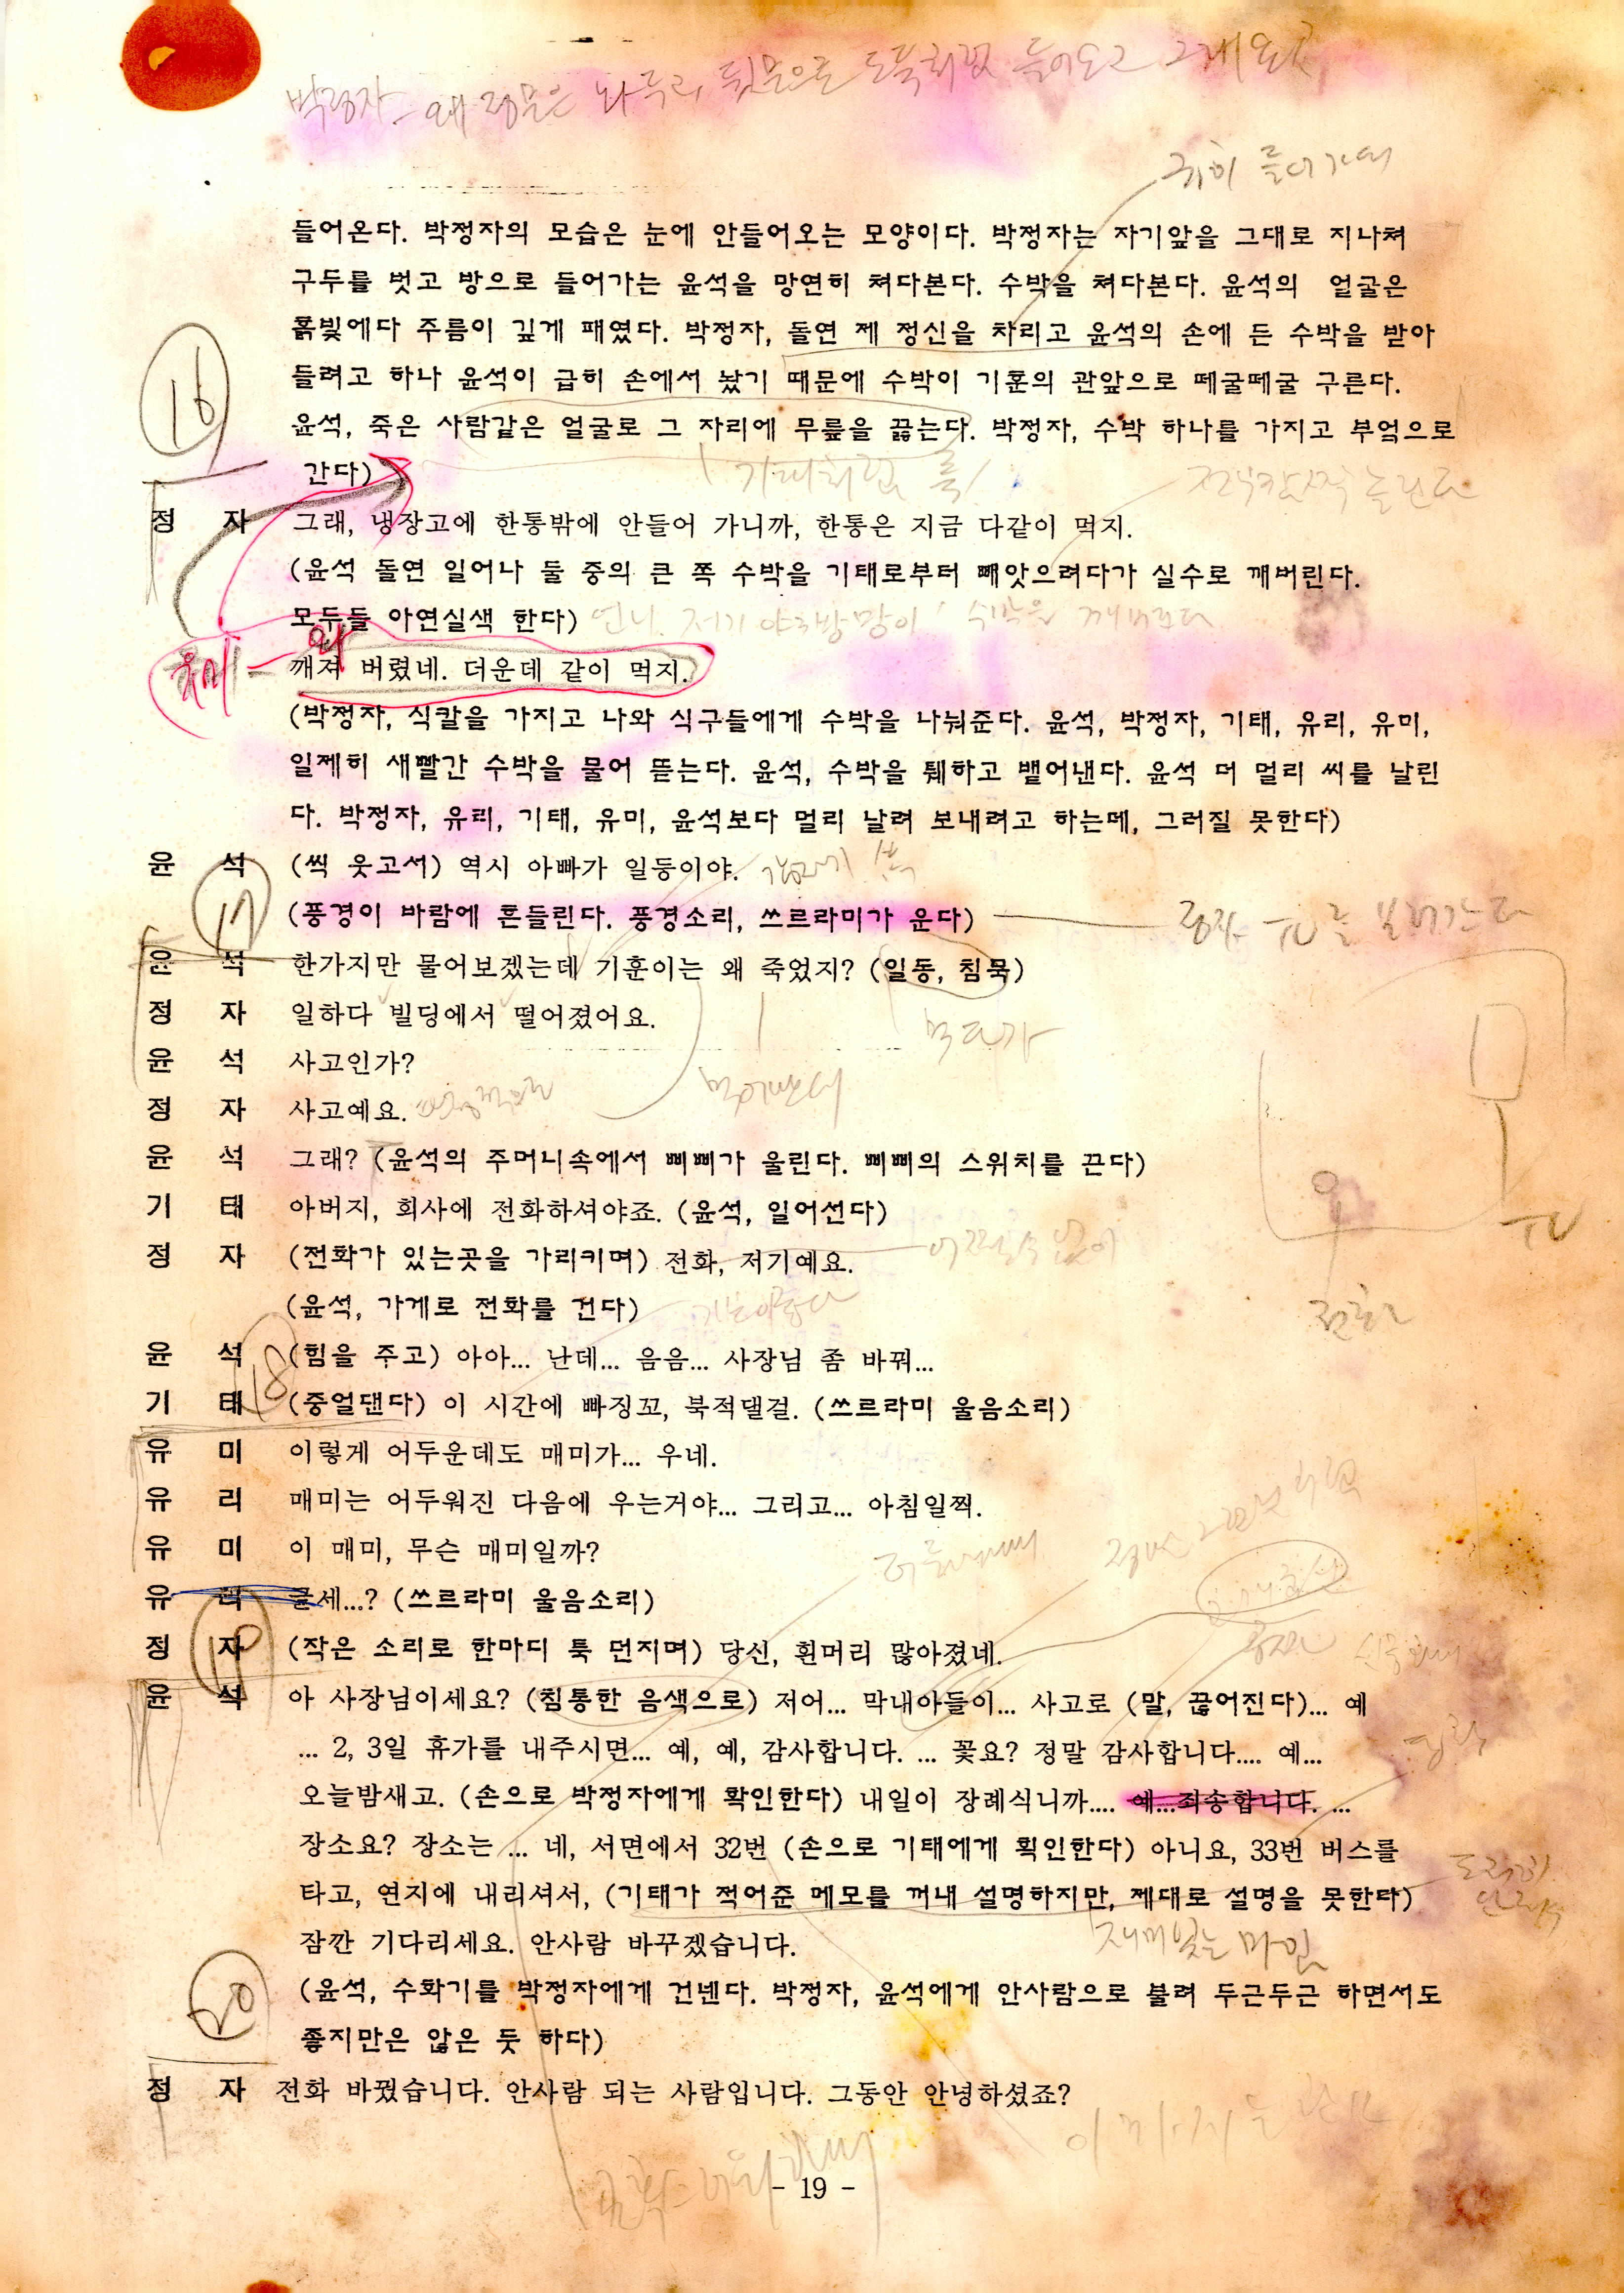 박정자 - 왜 정문은 놔두고, 뒷문으로 도둑처럼 들어오고 그래요
급히 들어가며
들어온다. 박정자의 모습은 눈에 안들어오는 모양이다. 박정자는 자기앞을 그대로 지나쳐
구두를 벗고 방으로 들어가는 윤석을 망연히 쳐다본다. 수박을 쳐다본다. 윤석의 얼굴은
흙빛에다 주름이 깊게 패였다. 박정자, 돌연 제 정신을 차리고 윤석의 손에 든 수박을 받아
들려고 하나 윤석이 급히 손에서 놨기 때문에 수박이 기훈의 관앞으로 떼굴떼굴 구른다.
16
윤석, 죽은 사람같은 얼굴로 그 자리에 무릎을 끓는다. 박정자, 수박 하나를 가지고 부엌으로
간다)
정 자 그래, 냉장고에 한통밖에 안들어 가니까, 한통은 지금 다같이 먹지.
(윤석 돌연 일어나 둘 중의 큰 쪽 수박을 기태로부터 빼앗으려다가 실수로 깨버린다.
모두들 아연실색 한다) 언니. 저기 야구방망이
유미 - 와
깨져 버렸네. 더운데 같이 먹지.
(박정자, 식칼을 가지고 나와 식구들에게 수박을 나눠준다. 윤석, 박정자, 기태, 유리, 유미,
일제히 새빨간 수박을 물어 뜯는다. 윤석, 수박을 퉤하고 뱉어낸다. 윤석 더 멀리 씨를 날린
다. 박정자, 유리, 기태, 유미, 윤석보다 멀리 날려 보내려고 하는데, 그러질 못한다)
윤 석 (씩 웃고서) 역시 아빠가 일등이야.
17
(풍경이 바람에 흔들린다. 풍경소리, 쓰르라미가 운다)
정자 TV를 보러간다
윤 석 한가지만 물어보겠는데 기훈이는 왜 죽었지? (일동, 침묵)
정 자 일하다 빌딩에서 떨어졌어요.
먹다가
윤 석 사고인가?
먹으면서
정 자 사고예요.
윤 석 그래? (윤석의 주머니속에서 삐삐가 울린다. 삐삐의 스위치를 끈다)
기 태 아버지, 회사에 전화하셔야죠. (윤석, 일어선다)
TV
정 자 (전화가 있는곳을 가리키며) 전화, 저기예요.
어쩔수 없이
(윤석, 가게로 전화를 건다)
전화
윤 석 (힘을 주고) 아아... 난데... 음음... 사장님 좀 바꿔...
18
기 태 (중얼댄다) 이 시간에 빠징꼬, 북적댈걸. (쓰르라미 울음소리)
유 미 이렇게 어두운데도 매미가... 우네.
유 리 매미는 어두워진 다음에 우는거야... 그리고... 아침일찍.
유 미 이 매미, 무슨 매미일까?
유 리 글세...? (쓰르라미 울음소리)
19
정 자 (작은 소리로 한마디 툭 던지며) 당신, 흰머리 많아졌네.
윤 석 아 사장님이세요? (침통한 음색으로) 저어... 막내아들이... 사고로 (말, 끊어진다)... 예
... 2, 3일 휴가를 내주시면... 예, 예, 감사합니다. ... 꽃요? 정말 감사합니다.... 예...
오늘밤새고. (손으로 박정자에게 확인한다) 내일이 장례식니까.... 예...죄송합니다. ...
장소요? 장소는 ... 네, 서면에서 32번 (손으로 기태에게 획인한다) 아니요, 33번 버스를
타고, 연지에 내리셔서, (기태가 적어준 메모를 꺼내 설명하지만, 제대로 설명을 못한다)
잠깐 기다리세요. 안사람 바꾸겠습니다.
재미있는 마임
20
(윤석, 수화기를 박정자에게 건넨다. 박정자, 윤석에게 안사람으로 불려 두근두근 하면서도
좋지만은 않은 듯 하다)
정 자 전화 바꿨습니다. 안사람 되는 사람입니다. 그동안 안녕하셨죠?
- 19 -